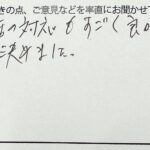 きの点、ご意見などを率直にお聞かせ
の対応もすごく良か
決めました。